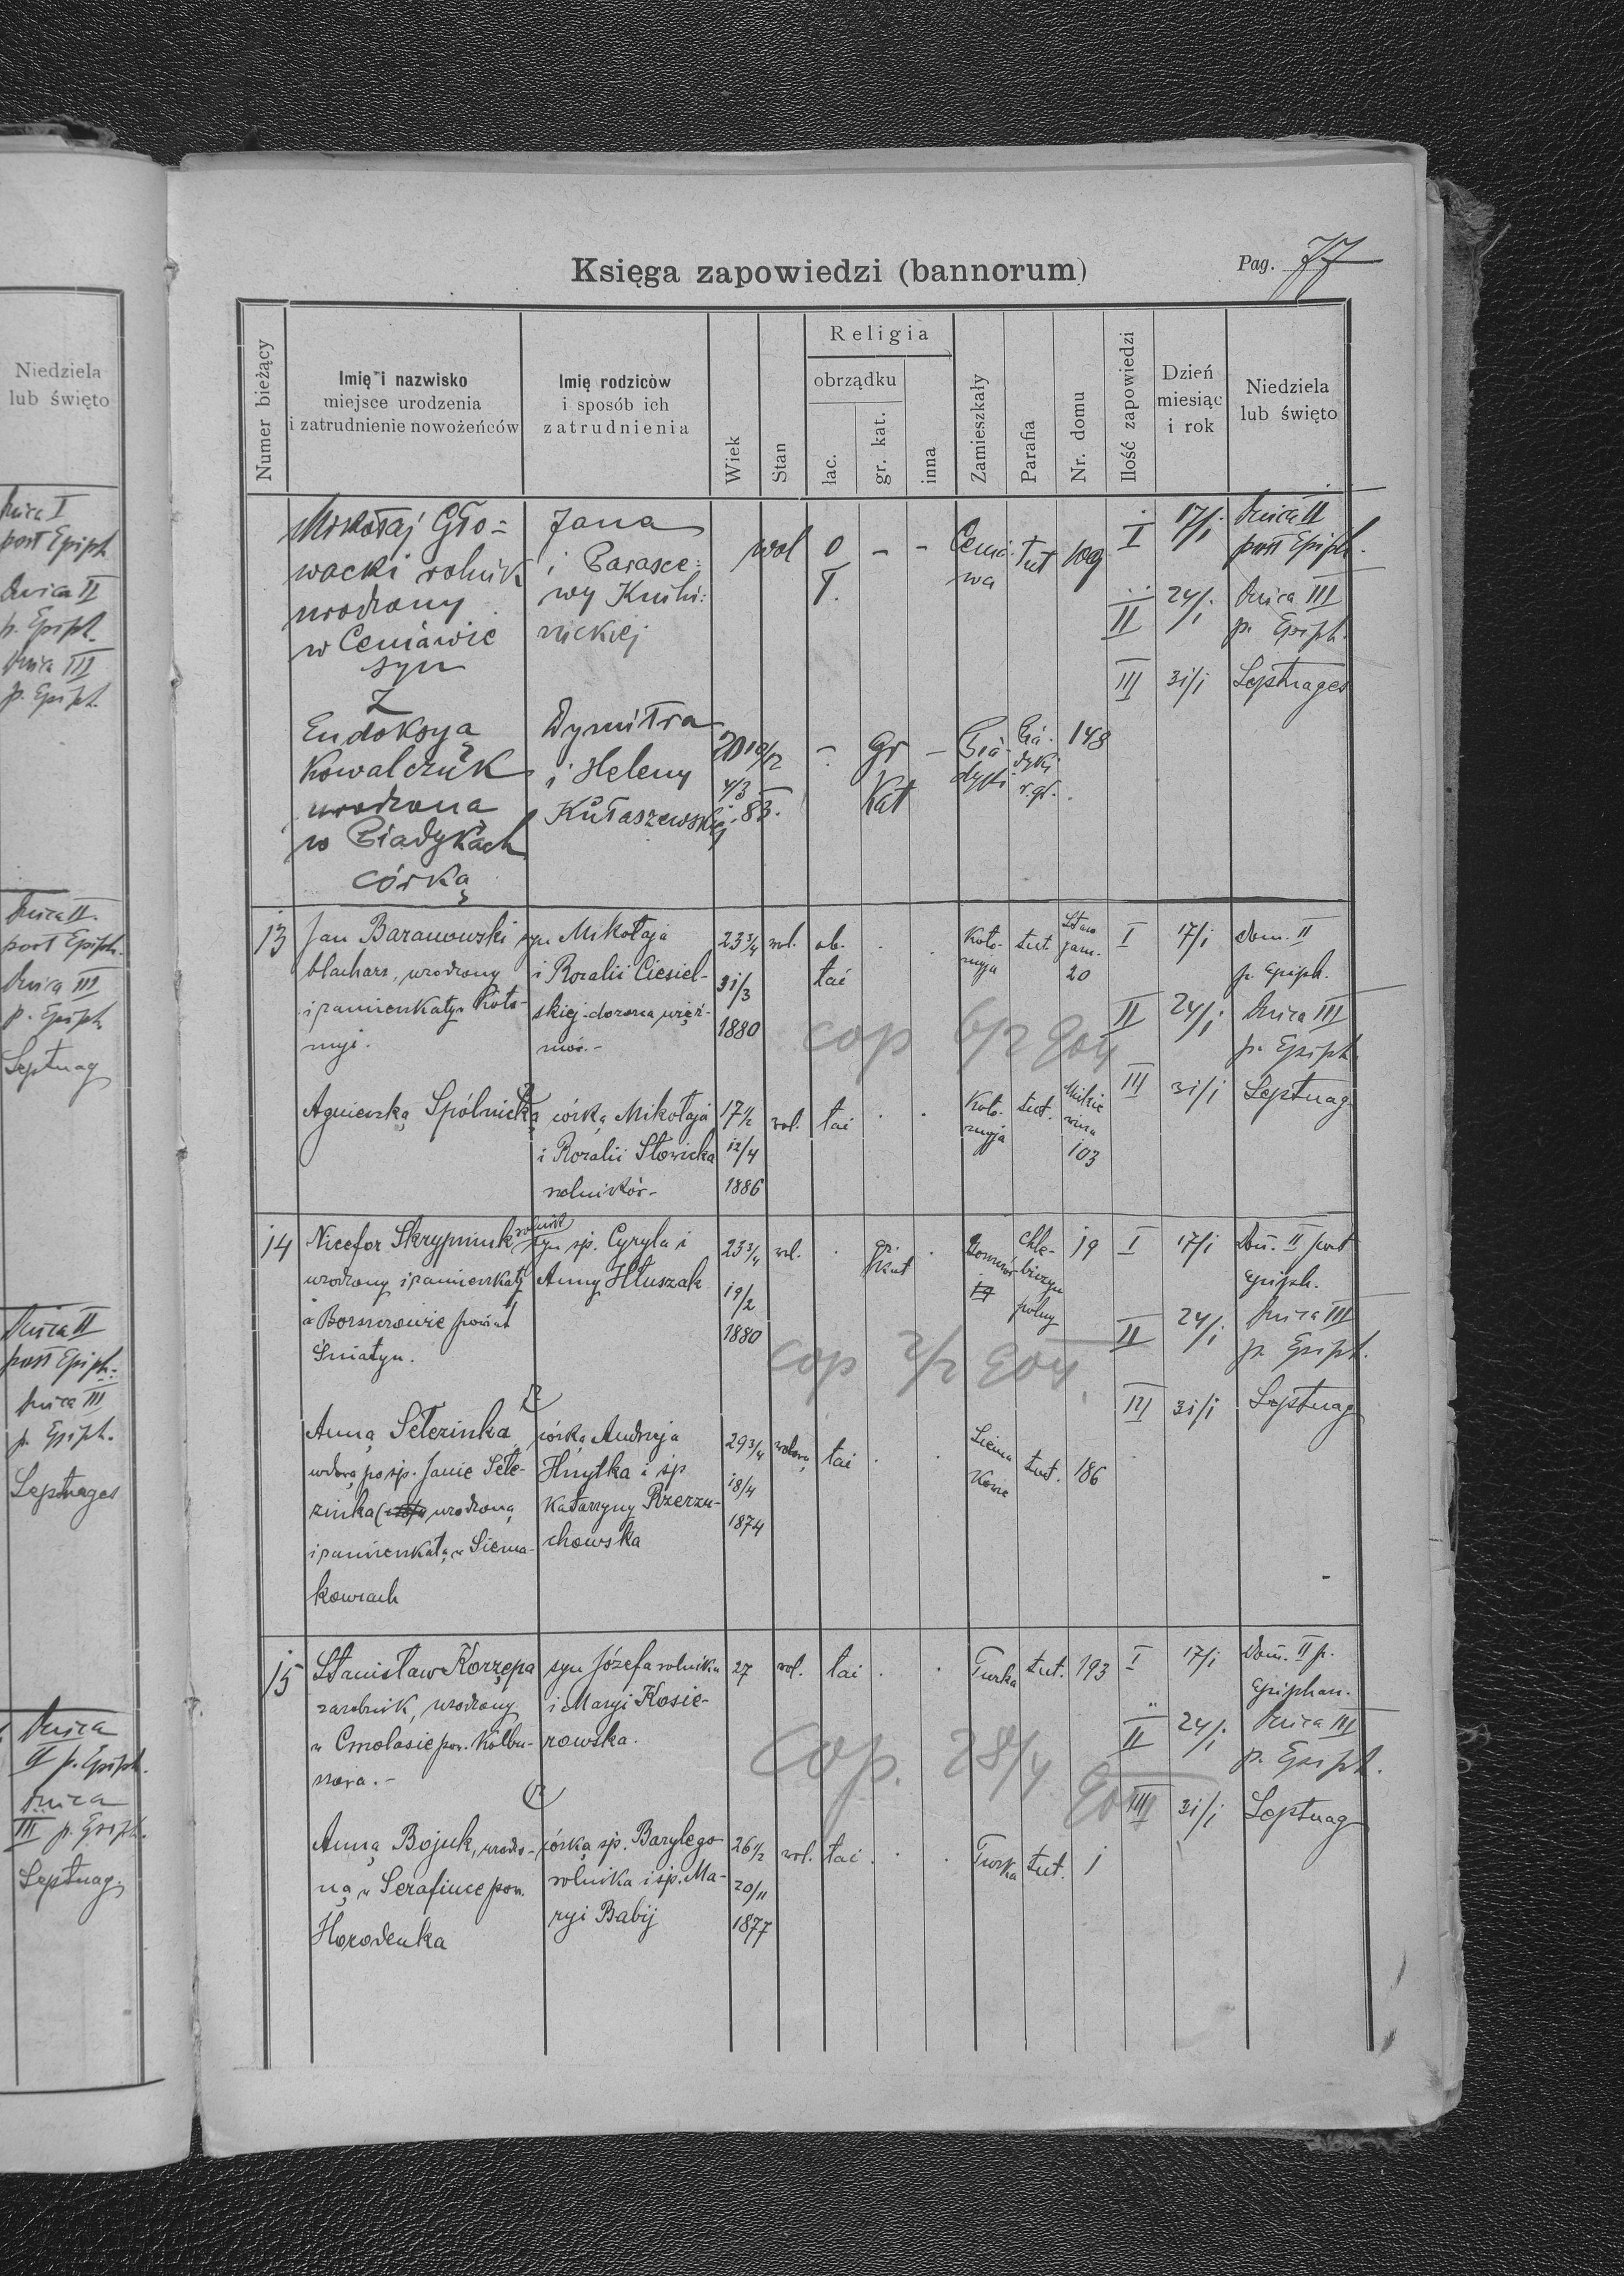 Niedziela
lub święto
Dnica I
post Epiph
Dnica II
p. Epiph.
Dnica III
p. Epiph.
Dnica II.
post Epiph.
Dnica III
p. Epiph
Septuag
Dnica II
post Epiph.
Dnica III
p. Epiph.
Septuages
Dnica
II p. Epiph.
Dnica
III p. Epiph.
Septuag.
Księga zapowiedzi (bannorum)
Pag. 77
Numer bieżący
Imię i nazwisko
miejsce urodzenia
i zatrudnienie nowożeńców
Imię rodziców
i sposób ich
zatrudnienia
Wiek
Stan
Religia
obrządku
łac.
gr. kat.
inna
Zamieszkały
Parafia
Nr. domu
Ilość zapowiedzi
Dzień
miesiąc
i rok
Niedziela
lub święto
Mikołaj Gło=
wacki rolnik
urodzony
w Ceniawie
syn
Jana
i Parasce=
wy
nickiej
wol
o
ł.
- -
Cenia-
wa
Tut
109
I 17/I Dnica II
post Epiph.
II 24/I Dnica III
p. Epiph.
III 31/I Septuages
z
Eudokyą
Kowalczuk
urodzona
w Piadykach
córką
Dymitra
i Heleny
Kułaszewskiej
20 10/12
4/3
83.
-
gr
Kat
-
Pia-
dyki
Pia-
dyki
r. gr.
148
13
Jan Baranowski
blacharz, urodzony
i zamieszkały w Koło-
myi.
syn Mikołaja
i Rozalii Ciesiel-
skiej dozorca więź-
niów.-
23 3/4
31/3
1880
wol.
ob.
łać
Koło-
myja
tut
20
I 17/I Dom. II
p. Epiph.
II 24/I Dnica III
p. Epiph.
III 31/I Septuag.
cop 6/2 904
z
Agnieszką Spólnicką
córką Mikołaja
i Rozalii Słowicka
rolników-
17 1/2
12/4
1886
wol.
łać
Koło-
myja
tut.
103
14
Nicefor Skrypniuk rolnik
urodzony i zamieszkały
w Borszczowie powiat
Śniatyn.
syn śp. Cyryla i
Anny Hłuszak
23 3/4
19/2
1880
wol.
gr.
kat
Borszczów
19
Chle-
biczyn
polny
19
I 17/I Dom. II post
Epiph.
II 24/I Dnica III
p. Epiph.
III 31/I Septuag
cop 2/2 904
z
Anną Selezinka
wdową po śp. Janie Sele-
zinka urodzoną
i zamieszkałą w Siema-
kowcach
córką Andryja
Hnytka i śp
Katarzyny Rzerzu-
chowska
29 3/4
18/4
1874
wdową
łać
Siema
Kowce
tut.
186
15
Stanisław Korzępa
zarobnik, urodzony
w Cmolasie pow. Kolbu-
szowa.-
syn Józefa rolnika
i Maryi Kosie-
rowska.
27
wol.
łać
Turka
tut.
193
I 17/I Dom. II p.
Epiphan.
II 24/I Dnica III
p. Epiph.
III 31/I Septuag
cop. 28/4 904
z
Anną Bojuk, urodzo-
ną w Serafińce pow.
Horodenka
córką śp. Bazylego
rolnika i śp. Ma-
ryi Babij
26 1/2
20/11
1877
wol.
łać
Turka
tut.
1